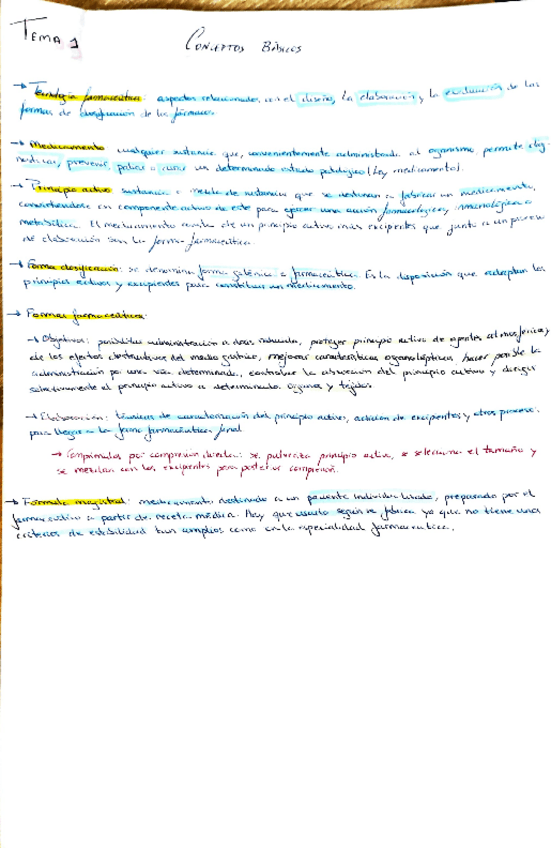 TEMA 1
CONCEPTOS BÁSICOS
→ Tecnología farmacéutica: aspectos relacionados con el diseño, la elaboración y la evaluación de las
formas de dosificación de los fármacos.
→ Medicamento cualquier sustancia que, convenientemente administrada al organismo permite diag-
nosticar, prevenir, paliar o curar un determinado estado patológico (Ley medicamento)
→ Principio activo sustancia o mezcla de sustancias que se destinan a fabricar un medicamento,
convirtiéndose en componente activo de este para ejercer una acción farmacológica, inmunológica o
metabólica. El medicamento consta de un principio activo más excipientes que junto a un proceso
de elaboración dan la forma farmacéutica.
→ Forma dosificación: se denomina forma galénica o farmacéutica. Es la disposición que adoptan los
principios activos y excipientes para constituir un medicamento.
→ Formas farmacéuticas:
→ Objetivos: posibilitar administración a dosis adecuada, proteger principio activo de agentes atmosféricos y
de los efectos destructivos del medio gástrico, mejorar características organolépticas, hacer posible la
administración por una vía determinada, controlar la absorción del principio activo y dirigir
selectivamente el principio activo a determinados órganos y tejidos
→ Elaboración: técnicas de caracterización del principio activo, adición de excipientes y otros procesos
para llegar a la forma farmacéutica final
→ Comprimidos por compresión directa: se pulveriza principio activo, se selecciona el tamaño y
se mezclan con los excipientes para posterior compresión.
→ Fórmula magistral: medicamento destinado a un paciente individualizado, preparado por el
farmacéutico a partir de receta médica. Hay que usarlo según se fabrica ya que no tiene unos
criterios de estabilidad tan amplios como en la especialidad farmacéutica.